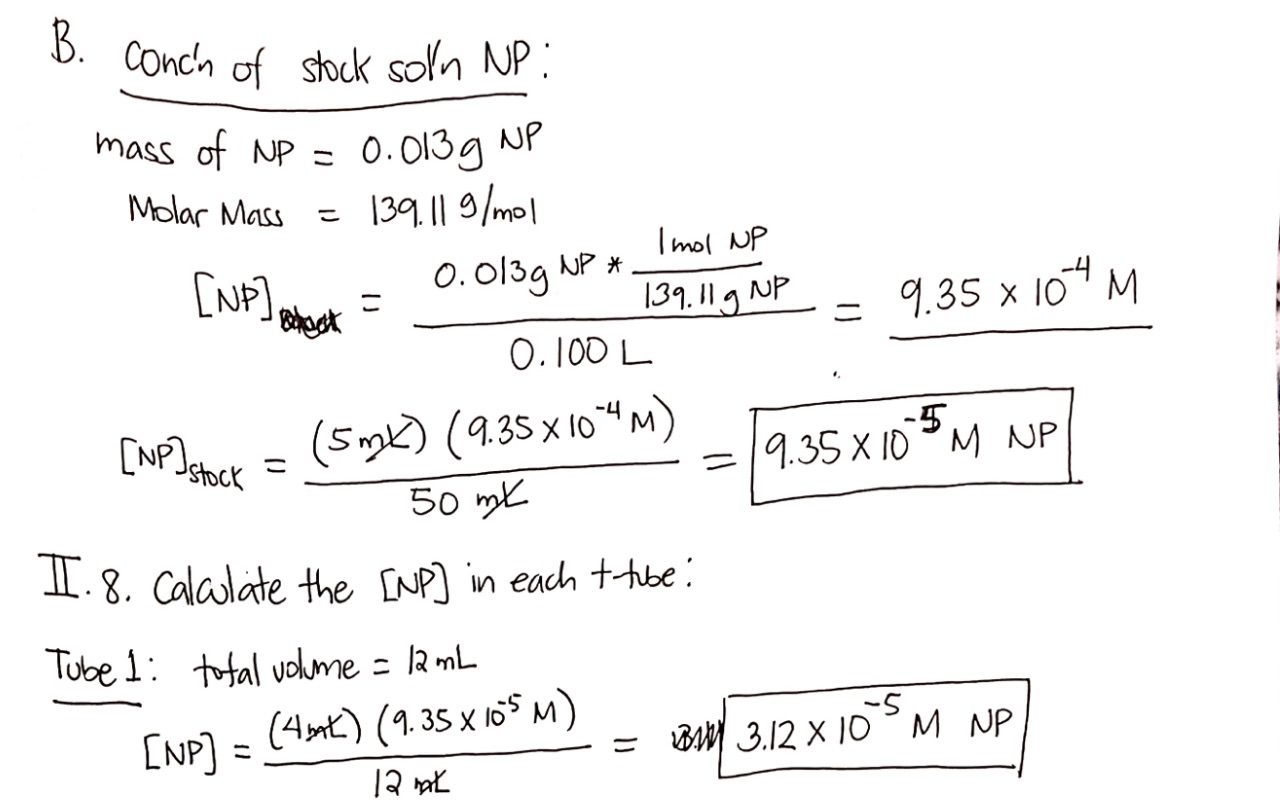 B. Conc'n of stock sol'n NP:
mass of NP = 0.013g NP
Molar Mass = 139.11 g/mol
[NP] = (0.013g NP * (1 mol NP / 139.11 g NP)) / 0.100 L = 9.35 x 10^-4 M
[NP]stock = (5 mL) (9.35 x 10^-4 M) / 50 mL = 9.35 x 10^-5 M NP
II. 8. Calculate the [NP] in each t-tube:
Tube 1: total volume = 12 mL
[NP] = (4 mL) (9.35 x 10^-5 M) / 12 mL = 3.12 x 10^-5 M NP